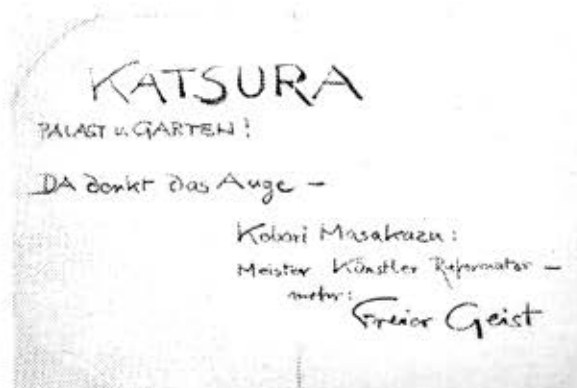 KATSURA
PALAST u. GARTEN!
DA denkt das Auge –
Kobori Masakazu:
Meister Künstler Reformator –
mehr:
Freier Geist